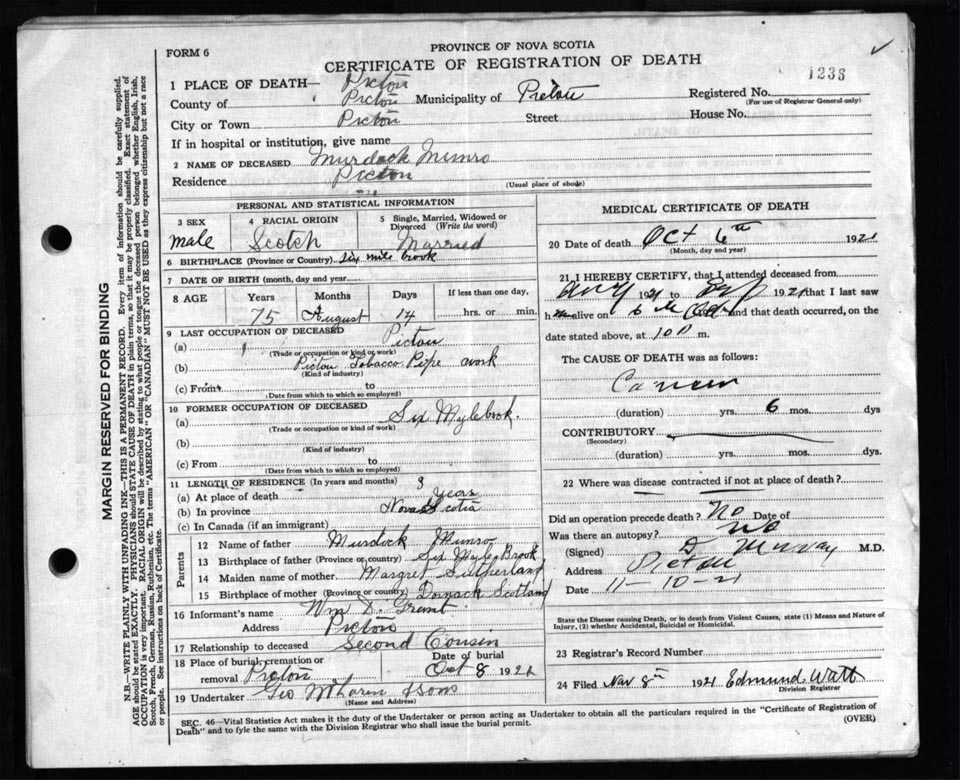 FORM 6
PROVINCE OF NOVA SCOTIA
CERTIFICATE OF REGISTRATION OF DEATH
1236
1 PLACE OF DEATH— Pictou
County of Pictou Municipality of Pictou Registered No.
(For use of Registrar General only)
City or Town Pictou Street House No.
If in hospital or institution, give name
2 NAME OF DECEASED Murdock Munro
Residence Pictou
(Usual place of abode)
PERSONAL AND STATISTICAL INFORMATION
3 SEX 4 RACIAL ORIGIN 5 Single, Married, Widowed or Divorced (Write the word)
male Scotch Married
6 BIRTHPLACE (Province or Country) Six mile brook
7 DATE OF BIRTH (month, day and year)
8 AGE Years Months Days If less than one day,
75 August 14 hrs. or min.
9 LAST OCCUPATION OF DECEASED
(a) Pictou
(Trade or occupation or kind of work)
(b) Pictou Tobacco Pipe work
(Kind of industry)
(c) From to
(Date from which to which so employed)
10 FORMER OCCUPATION OF DECEASED
(a) Six Mylebrook.
(Trade or occupation or kind of work)
(b)
(Kind of industry)
(c) From to
(Date from which to which so employed)
11 LENGTH OF RESIDENCE (In years and months) 3
(a) At place of death years
(b) In province Nova Scotia
(c) In Canada (if an immigrant)
Parents
12 Name of father Murdock Munro
13 Birthplace of father (Province or country) Six Myle Brook
14 Maiden name of mother Margret Sutherland
15 Birthplace of mother (Province or country) Dornack Scotland
16 Informant's name Wm D. Grant
Address Pictou
17 Relationship to deceased Second Cousin
18 Place of burial, cremation or removal Pictou Date of burial Oct 8 1921
19 Undertaker Geo McLaren & Sons
(Name and Address)
MEDICAL CERTIFICATE OF DEATH
20 Date of death Oct 6th 1921
(Month, day and year)
21 I HEREBY CERTIFY, that I attended deceased from
1921 to 1921 that I last saw
h alive on 6 and that death occurred, on
date stated above, at 10 m.
The CAUSE OF DEATH was as follows:
Cancer
(duration) yrs. 6 mos. dys
CONTRIBUTORY
(Secondary)
(duration) yrs. mos. dys.
22 Where was disease contracted if not at place of death?
Did an operation precede death? No Date of
Was there an autopsy? No
(Signed) Murray M.D.
Address Pictou
Date 11-10-21
State the Disease causing Death, or in death from Violent Causes, state (1) Means and Nature of
Injury, (2) whether Accidental, Suicidal or Homicidal.
23 Registrar's Record Number
24 Filed Nov 8th 1921 Edmund Watt
Division Registrar
SEC. 46—Vital Statistics Act makes it the duty of the Undertaker or person acting as Undertaker to obtain all the particulars required in the "Certificate of Registration of
Death" and to fyle the same with the Division Registrar who shall issue the burial permit.
(OVER)
MARGIN RESERVED FOR BINDING
N.B.—WRITE PLAINLY WITH UNFADING INK—THIS IS A PERMANENT RECORD. Every item of information should be carefully supplied.
AGE should be stated EXACTLY. PHYSICIANS should STATE CAUSE OF DEATH in plain terms, so that it may be properly classified. Exact statement of
OCCUPATION is very important. RACIAL ORIGIN will be described by stating to what people or tongue the deceased person belonged whether English, Irish,
Scotch, French, German, Russian, Ruthenian, etc. The terms "AMERICAN" OR "CANADIAN" MUST NOT BE USED as they express citizenship but not a race
or people. See instructions on back of Certificate.